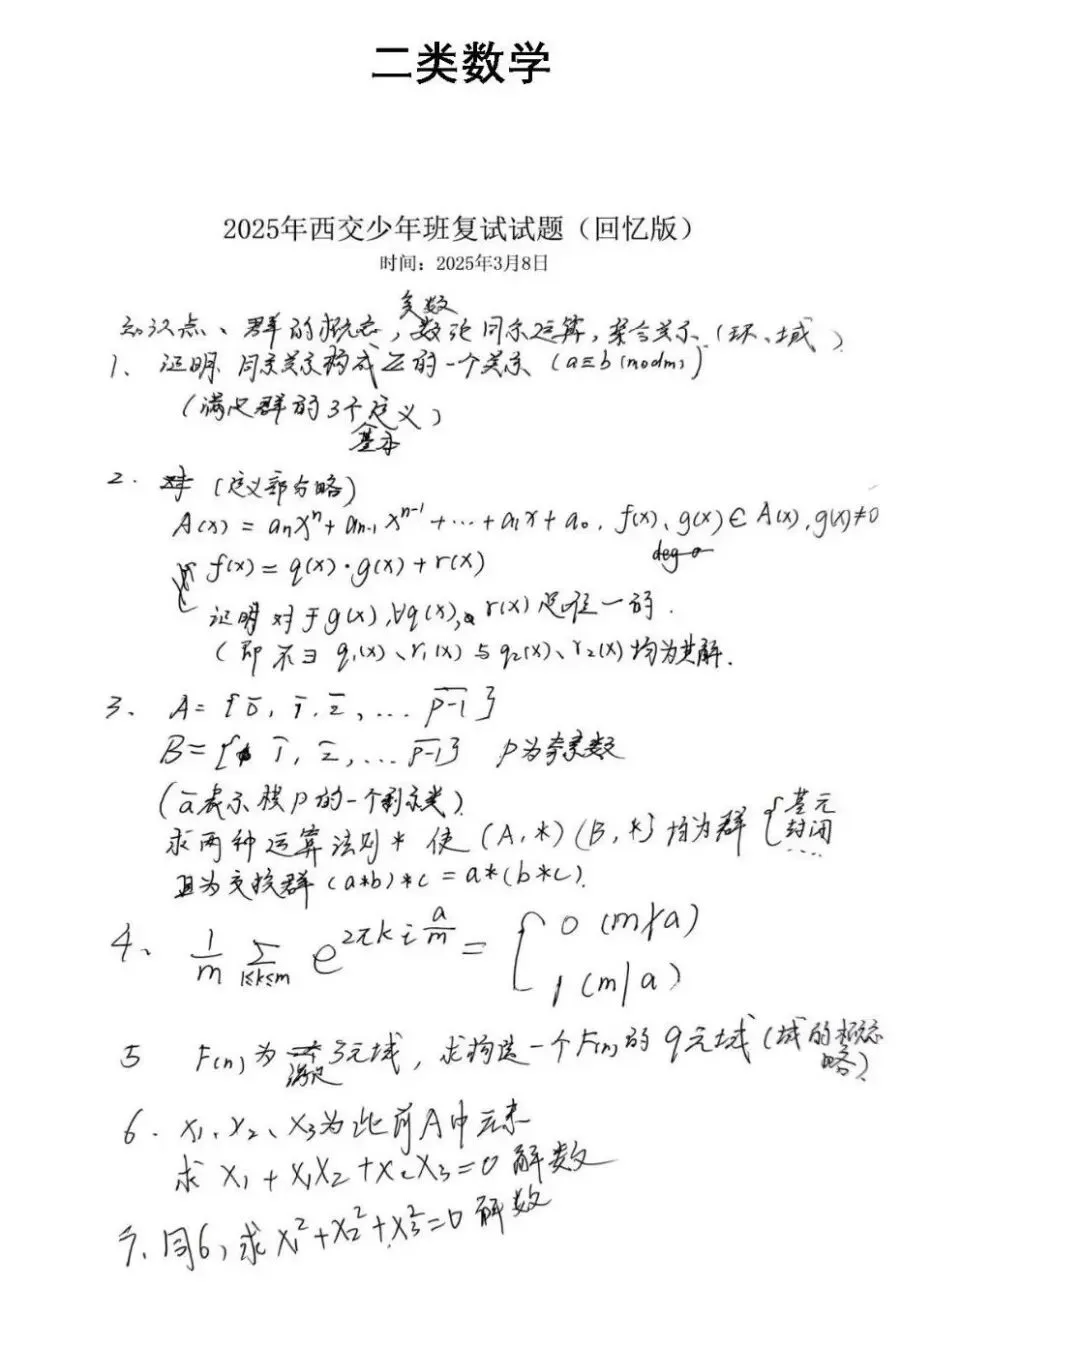 二类数学
2025年西交少年班复试试题（回忆版）
时间：2025年3月8日
复数
知识点、群的概念，数论同余运算，整合关系（环、域）
1、证明 同余关系构成 Z 的一个关系 (a≡b(modm))
（满足群的3个定义）
基本
2. （定义部分略）
A(x) = aₙxⁿ + aₙ₋₁xⁿ⁻¹ + … + a₁x + a₀. f(x)、g(x) ∈ A(x), g(x)≠0
f(x) = q(x)·g(x) + r(x)
证明 对于g(x), ∀q(x), r(x) 是唯一的.
（即不∃ q₁(x)、r₁(x) 与 q₂(x)、r₂(x) 均为其解.
3、A = {0̄, 1̄, 2̄, … p-1̄}
B = {1̄, 2̄, … p-1̄} p为奇素数
（ā表示模p的一个剩余类）
求两种运算法则 * 使 (A,*) (B,*) 均为群 { 基元 封闭 ….
且为交换群 (a*b)*c = a*(b*c).
4、1/m ∑_{1≤k≤m} e^{2πki a/m} = { 0 (m∤a) 1 (m|a)
5 F(n) 为 3元域，求构造一个F(n)的9元域（域的概念略）
6. x₁、x₂、x₃为此前A中元素
求 x₁ + x₁x₂ + x₂x₃ = 0 解数
7. 同6，求 x₁² + x₂² + x₃² = 0 解数